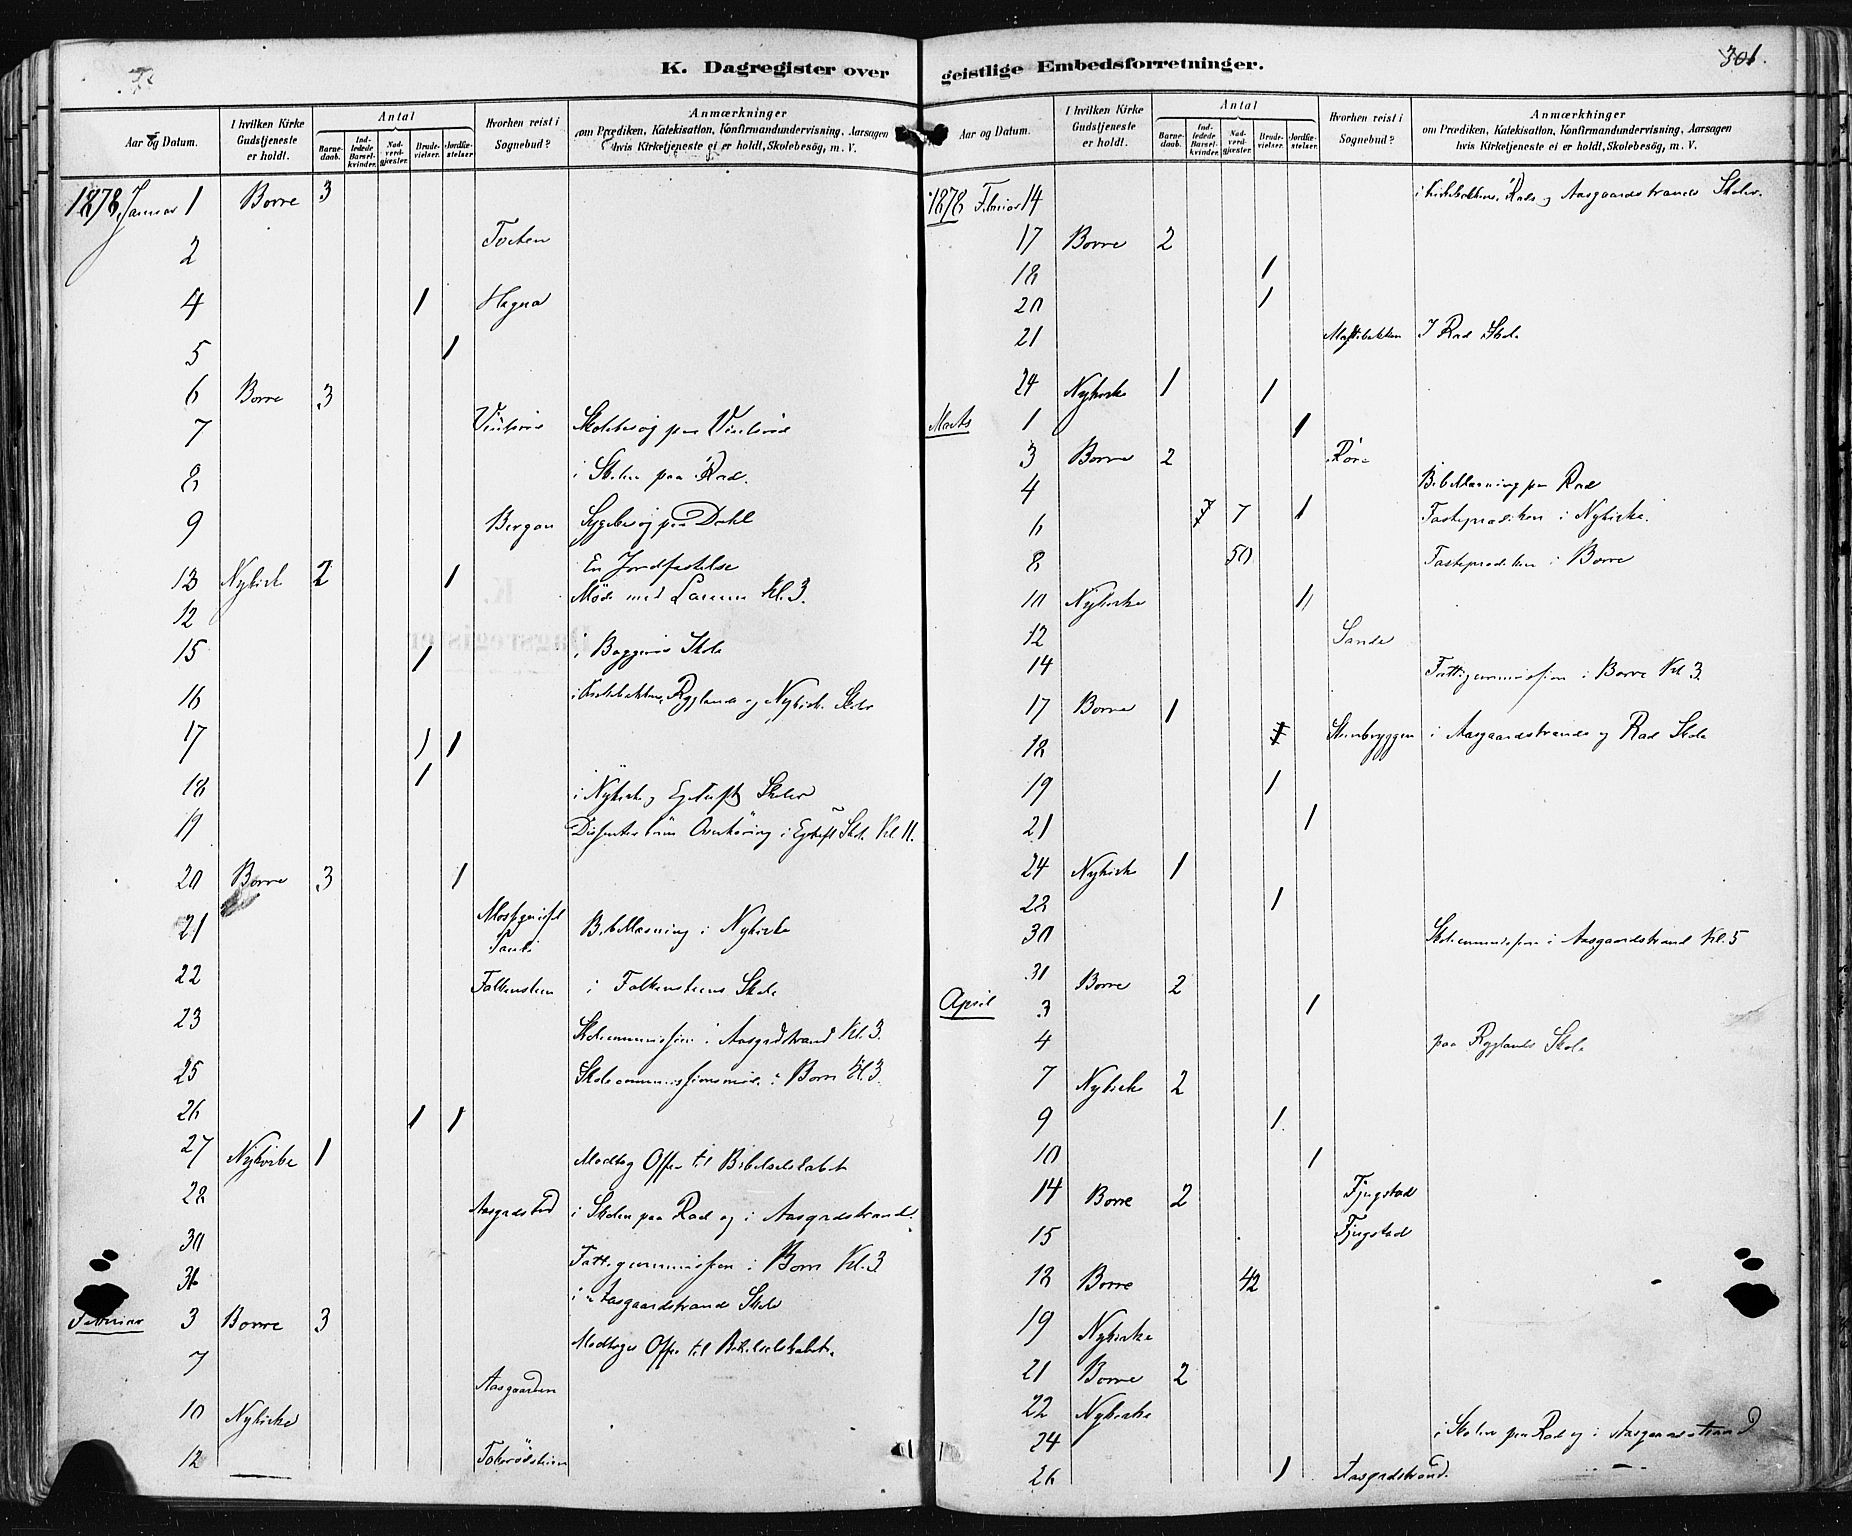 K. Dagregister over
Aar og Datum. | I hvilken Kirke Gudstjeneste er holdt. | Antal | Barnedaab. | Indledede Barselkvinder. | Nadverdgjæster. | Brudevielser. | Jordfæstelser | Hvorhen reist i Sognebud? | Anmærkninger om Prædiken, Katekisation, Konfirmandundervisning, Aarsagen hvis Kirketjeneste ei er holdt, Skolebesög, m. V.
1878 Januar 1 Borre 3
2
4 1 Hagen
5 1
6 Borre 3
7 Skolebesøg paa
8 i Skolen paa Rad.
9 Sygebesøg paa Dahl
13 Nykirk 2 1 En Jordfæstelse
12 Møde med Kl. 3.
15 1 i Skole
16 Ryglands og Nykirk Skoler
17 1 1
18 1 i Nykirk og Skoler
19 i Skole Kl. 11.
20 Borre 3 1
21 Bibellæsning i Nykirke
22 Falkensteen i Falkensteens Skole
23 Skolecommission i Aasgrdstrand Kl. 3.
25 Skolecommissionsmøde i Borre Kl. 3.
26 1 1
27 Nykirke 1 Modtog Offer til Bibelselskabet
28 i Skolen paa Rad og i Aasgrdstrand
30 Fattigcommission i Borre Kl. 3
31 i Aasgaardstrands Skole
Februar 3 Borre 3
7 Modtoges Offer til Bibelselskabet.
Aasgaarden
10 Nykirke
12
geistlige Embedsforretninger.
301.
Aar og Datum. | I hvilken Kirke Gudstjeneste er holdt. | Antal | Barnedaab. | Indledede Barselkvinder. | Nadverdgjæster. | Brudevielser. | Jordfæstelser | Hvorhen reist i Sognebud? | Anmærkninger om Prædiken, Katekisation, Konfirmandundervisning, Aarsagen hvis Kirketjeneste ei er holdt, Skolebesög, m. V.
1878 Februar 14 i Kirkebakkens, Rads og Aasgaardstrands Skoler.
17 Borre 2
18 1
20 1
21 I Rad Skole
24 Nykirke 1 1
Marts 1 1
3 Borre 2
4 Bibellæsning paa Rad
6 7 1 Fasteprædiken i Nykirke.
8 50 Fasteprædiken i Borre
10 Nykirke
12 Sande
14 Fattigcommission i Borre Kl. 3.
17 Borre 1
18 Steenbryggen i Aasgaardstrands og Rad Skole
19 1
21 1
24 Nykirke 1
1
30 Skolecommission i Aasgaardstrand Kl. 5
31 Borre 2
April 3 1
4 paa Ryglands Skole
7 Nykirke 2
9 1
10 1
14 Borre 2 Fjugstad
15 Fjugstad
18 Borre 42
19 Nykirke
21 Borre 2
22 Nykirke
24 i Skolen paa Rad og i Aasgaardstrand
26 1 Aasgrdstrand.